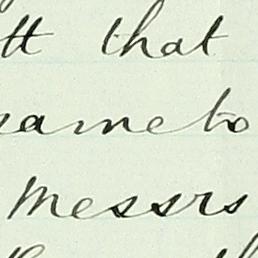 that
same to
Messrs